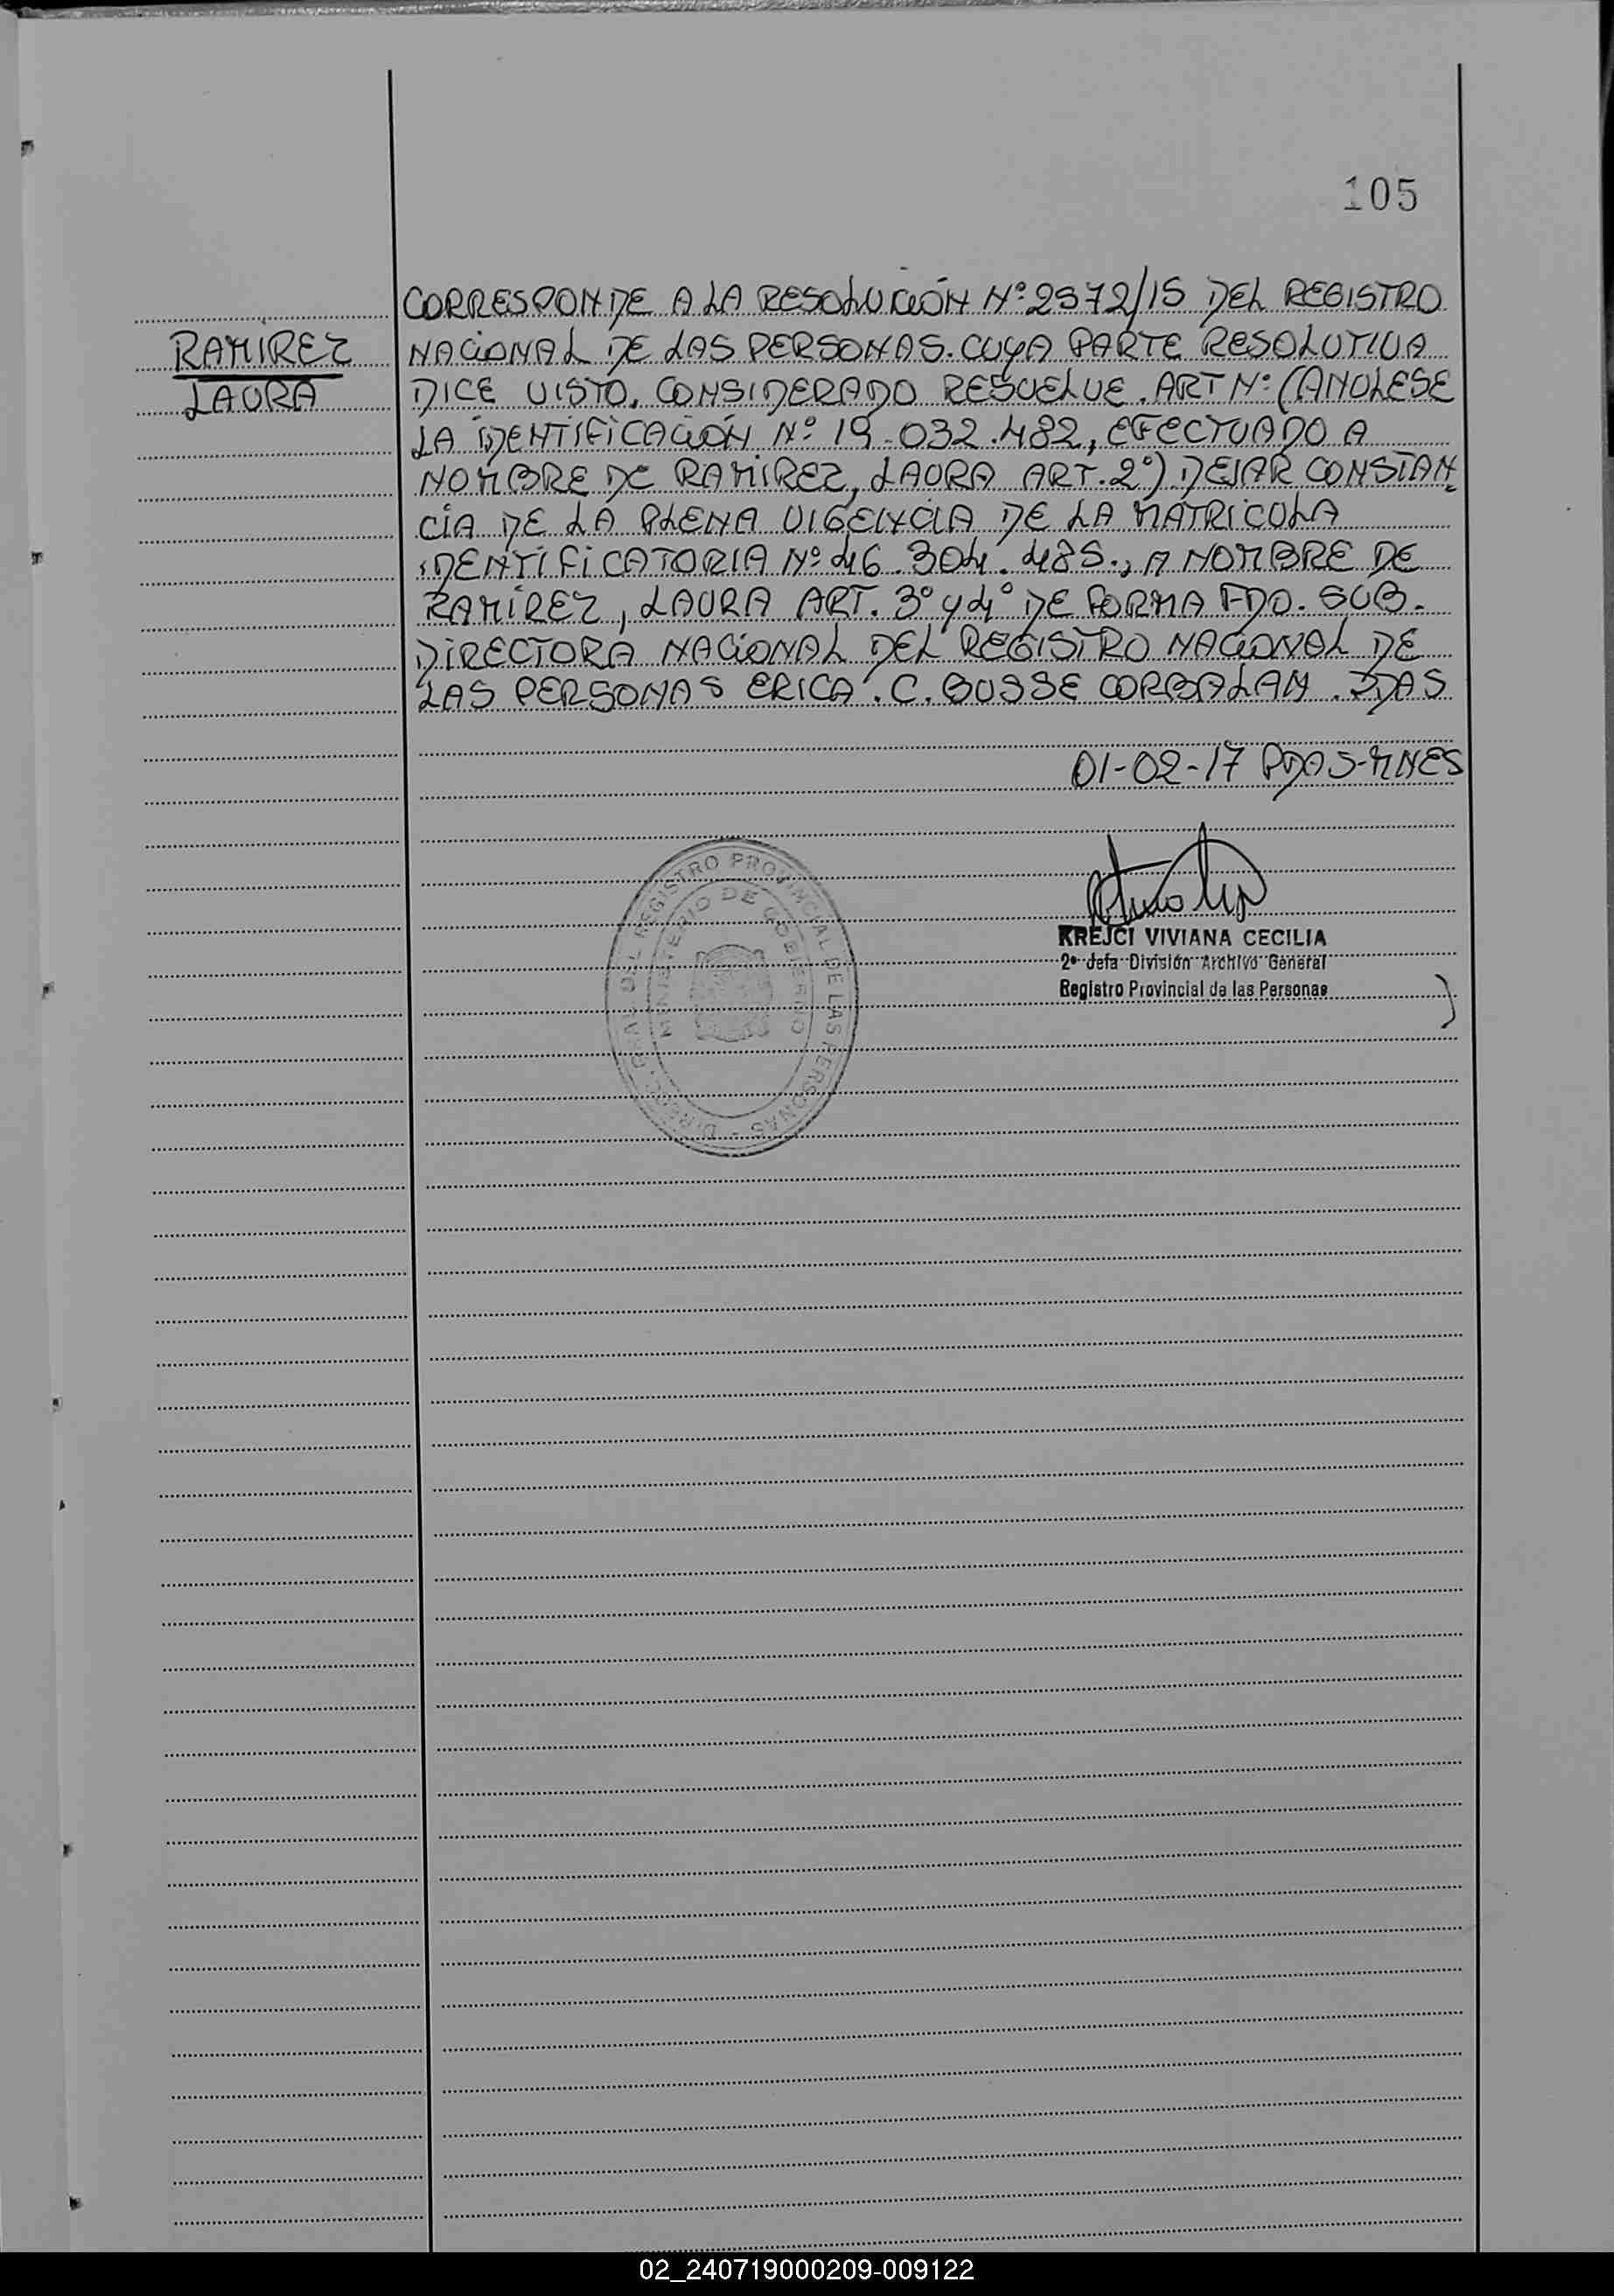 105
RAMIREZ
LAURA
CORRESPONDE A LA RESOLUCIÓN Nº 2572/15 DEL REGISTRO
NACIONAL DE LAS PERSONAS. CUYA PARTE RESOLUTIVA
DICE VISTO, CONSIDERADO RESUELVE. ART Nº (ANULESE
LA IDENTIFICACIÓN Nº 19.032.482, EFECTUADO A
NOMBRE DE RAMIREZ, LAURA ART. 2º) DEJAR CONSTAN
CIA DE LA PLENA VIGENCIA DE LA MATRICULA
IDENTIFICATORIA Nº 46.304.485., A NOMBRE DE
RAMIREZ, LAURA ART. 3º y 4º DE FORMA FDO. SUB.
DIRECTORA NACIONAL DEL REGISTRO NACIONAL DE
LAS PERSONAS ERICA. C. BUSSE CORBALAN.
01-02-17 PDAS-MNES
KREJCI VIVIANA CECILIA
2ª Jefa División Archivo General
Registro Provincial de las Personas
DEL REGISTRO PROVINCIAL DE LAS PERSONAS
MINISTERIO DE GOBIERNO
02_240719000209-009122